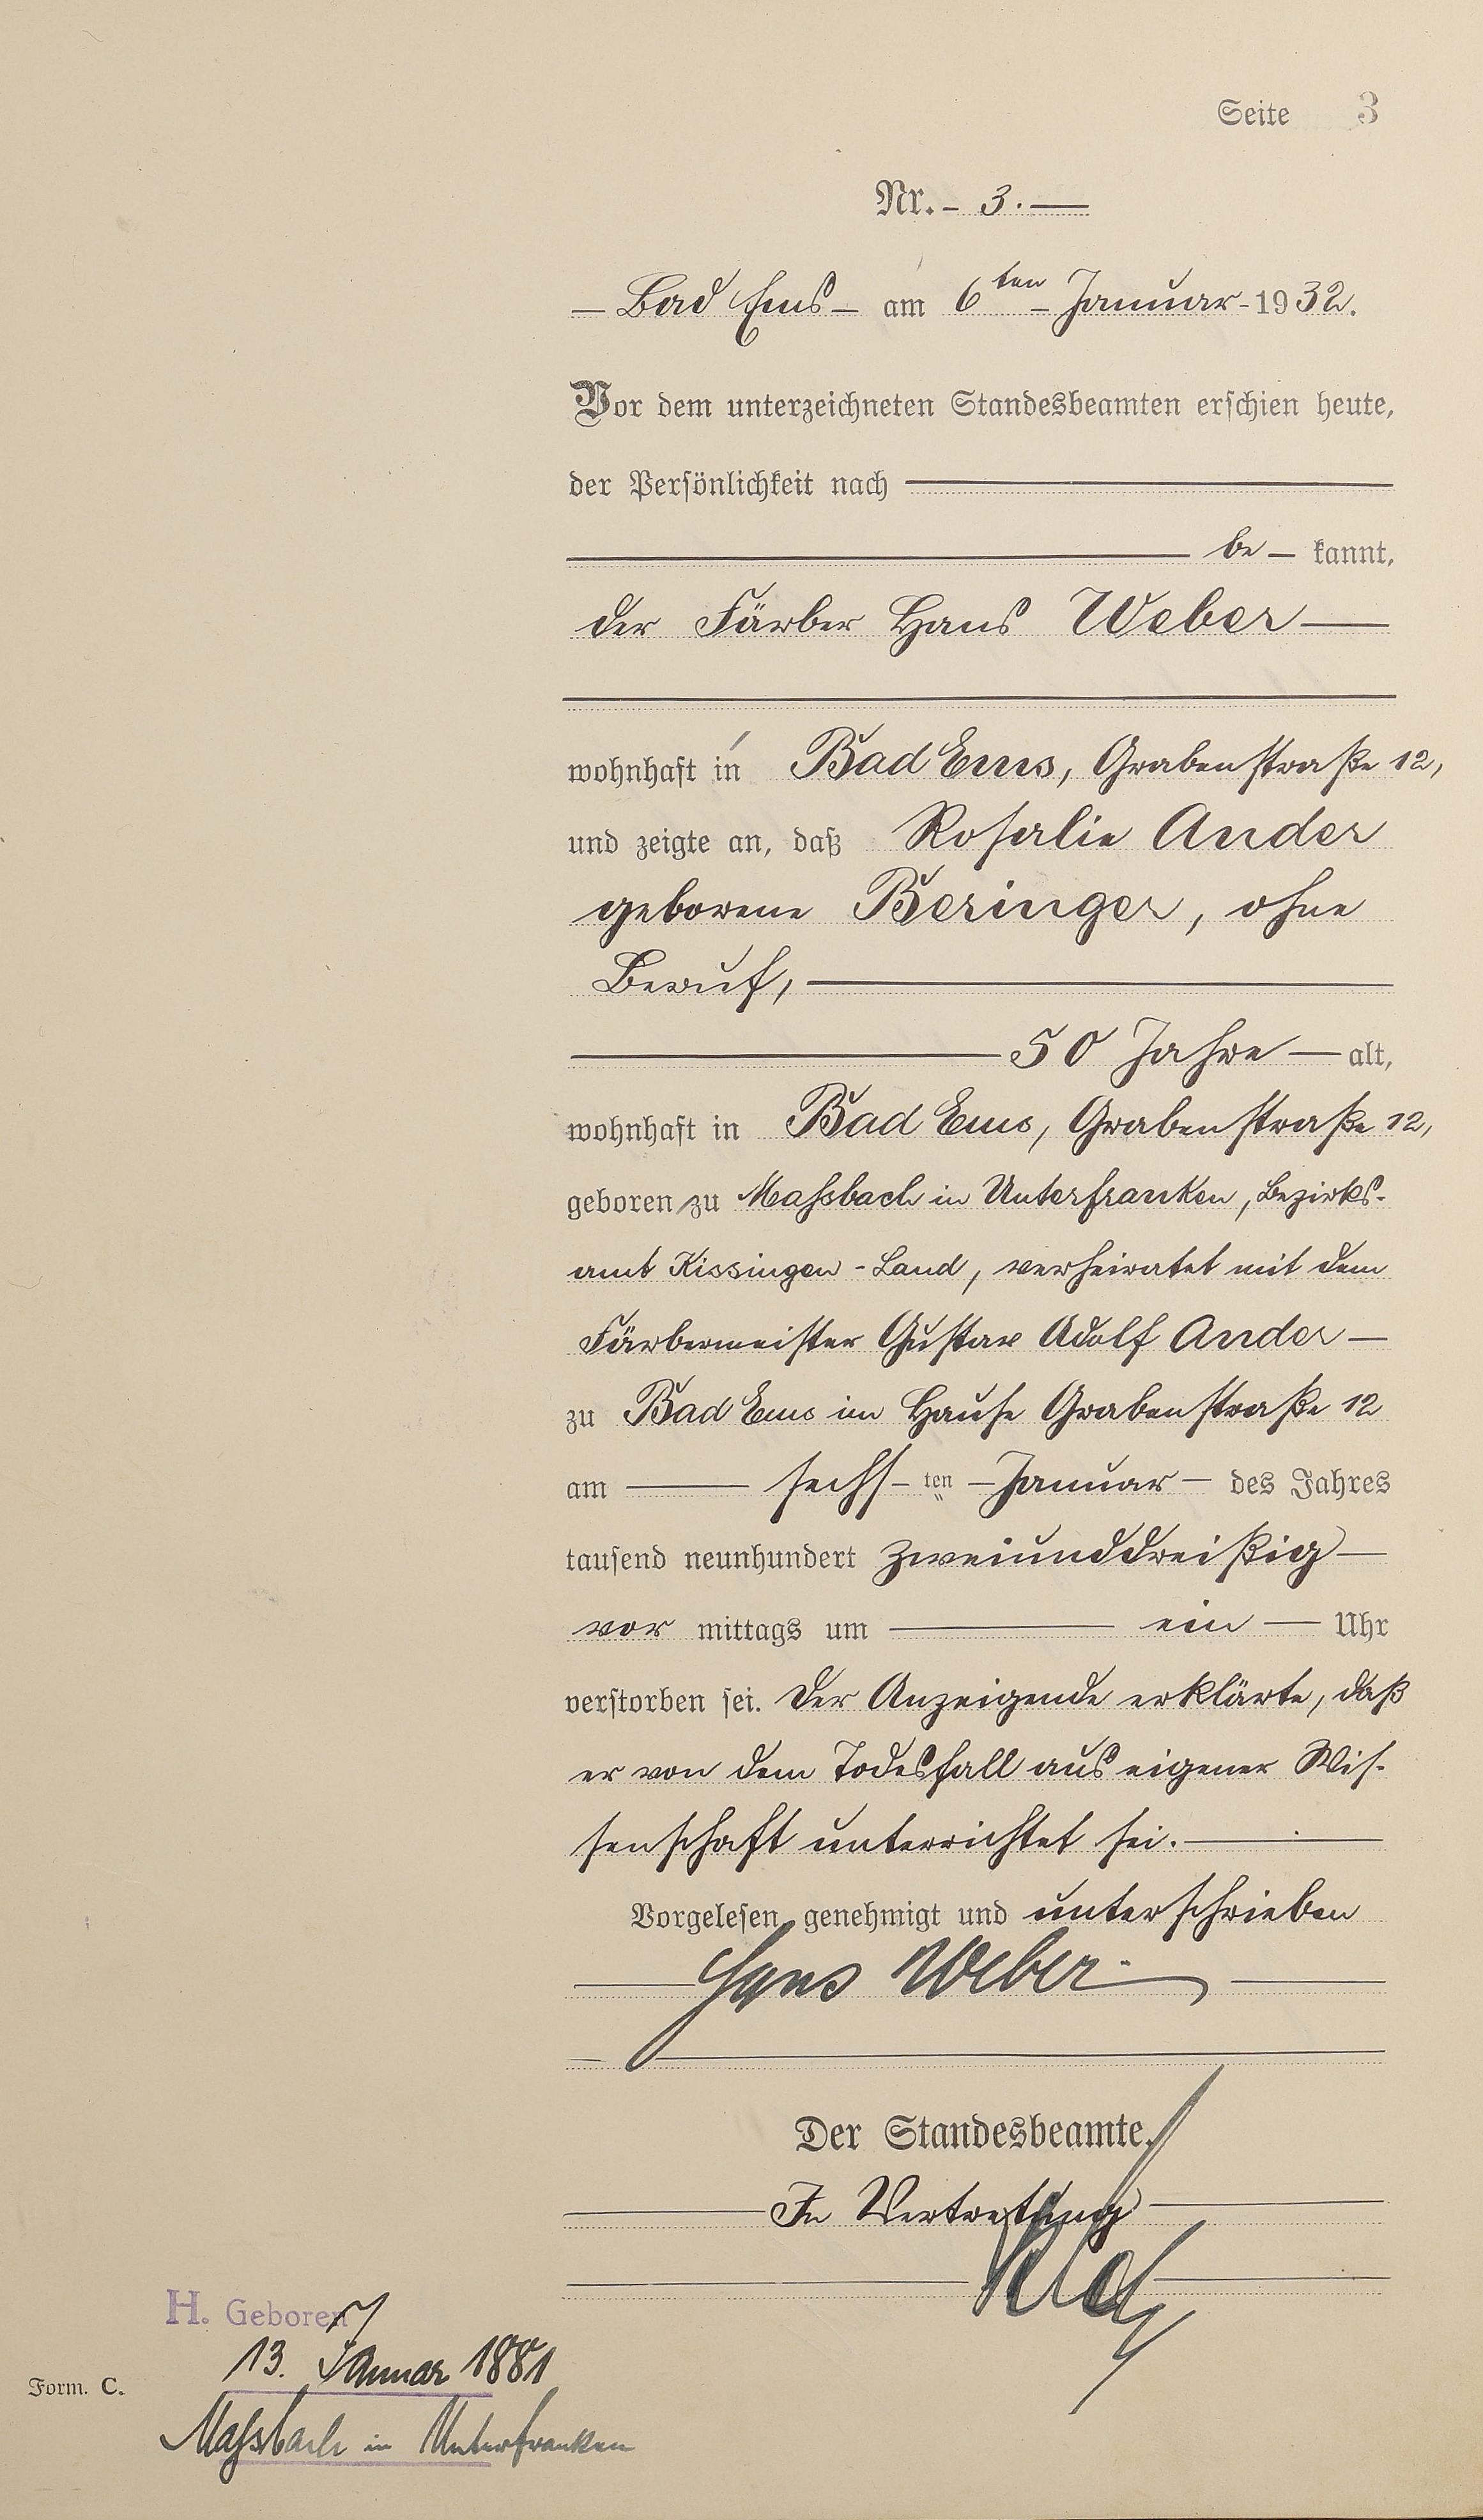 Seite 3
Nr. - 3. —
— Bad Ems — am 6ten - Januar - 1932.
Vor dem unterzeichneten Standesbeamten erschien heute,
der Persönlichkeit nach
be — kannt,
der Färber Hans Weber —
wohnhaft in Bad Ems, Grabenstraße 12,
und zeigte an, daß Rosalie Ander
geborene Beringer, ohne
Beruf, —
— 50 Jahre — alt,
wohnhaft in Bad Ems, Grabenstraße 12,
geboren zu Massbach in Unterfranken, Bezirks-
amt Kissingen - Land, verheiratet mit dem
Färbermeister Gustav Adolf Ander —
zu Bad Ems im Hause Grabenstraße 12
am — sechs - ten — Januar — des Jahres
tausend neunhundert zweiunddreißig —
vor mittags um — ein — Uhr
verstorben sei. Der Anzeigende erklärte, daß
er von dem Todesfall aus eigener Wis-
senschaft unterrichtet sei. —
Vorgelesen, genehmigt und unterschrieben
Hans Weber.
Der Standesbeamte.
In Vertretung
H. Geboren
13. Januar 1881
Form. C.
Massbach in Unterfranken